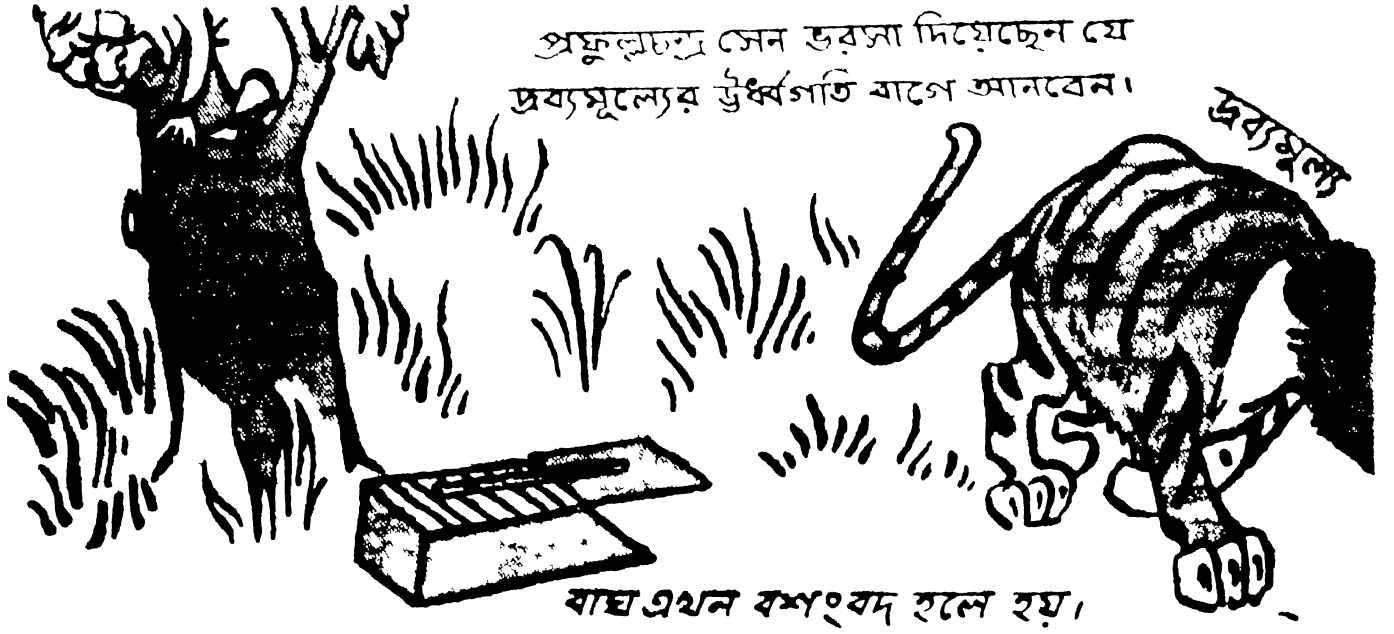 প্রফুল্লচন্দ্র সেন ভরসা দিয়েছেন যে
দ্রব্যমূল্যের ঊর্ধ্বগতি বাগে আনবেন।
দ্রব্যমূল্য
বাঘ এখন বশংবদ হলে হয়।